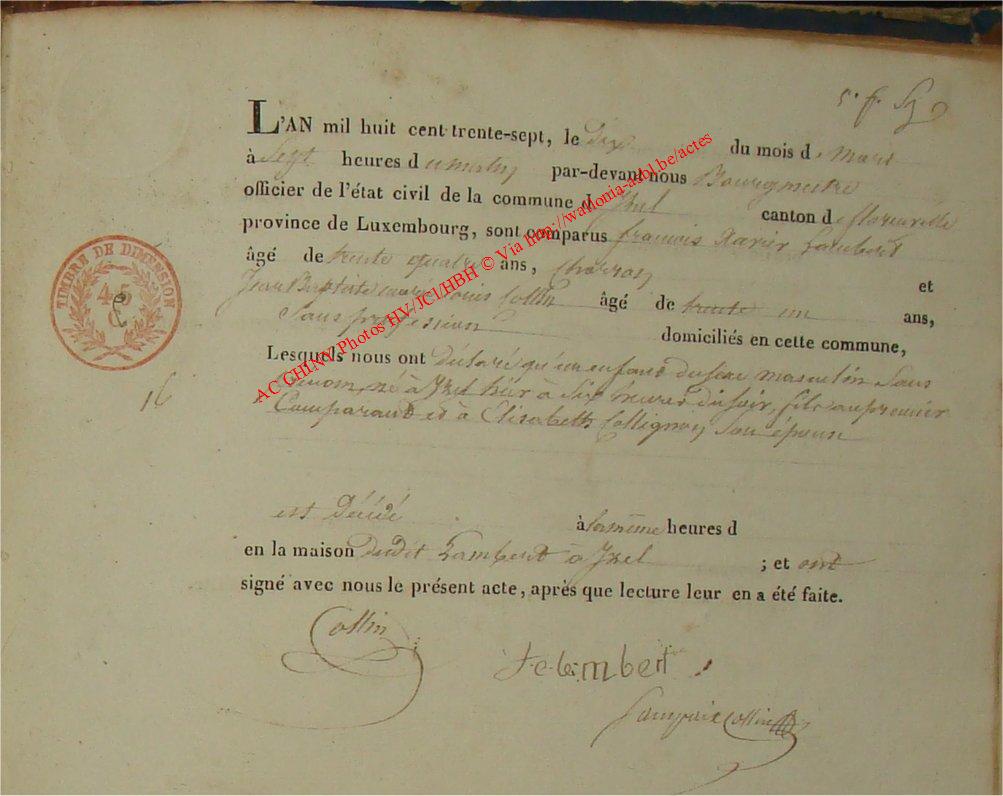 5. f.
L'AN mil huit cent trente-sept, le dix du mois de Mars
à Sept heures du matin par-devant nous Bourgmestre
officier de l'état civil de la commune d Izel canton de florenville
province de Luxembourg, sont comparus francois Xavier Lambert
âgé de trente quatre ans, Charron et
Jean Baptiste Louis Collin âgé de trente un ans,
Sans profession domiciliés en cette commune,
Lesquels nous ont déclaré qu'un enfant du sexe masculin Sans
prenom, né à Izel hier à Six heures du soir, fils au premier
Comparant et à Elisabeth Collignon Son épouse
est Décédé à la même heures d
en la maison dudit Lambert à Izel ; et ont
signé avec nous le présent acte, après que lecture leur en a été faite.
TIMBRE DE DIMENSION
45
C
16
Collin
f-c-lambert
Lampaix Collin
AC CHINY Photos HV/JC1/HBH © Via http://wallonia-asbl.be/actes